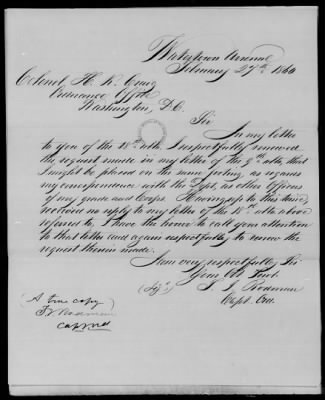 Watertown Arsenal
February 29th 1860
Colonel H. K. Craig
Ordnance Office
Washington, D.C.
Sir
In my letter
to you of the 18th ulto. I respectfully renewed
the request made in my letter of the 9th ulto, that
I might be placed on the same footing as regards
my correspondence with the Dept, as other Officers
of my grade and Corps. Having up to this time
received no reply to my letter of the 18th ulto above
referred to, I have the honor to call your attention
to that letter and again respectfully to renew the
request therein made.
I am very respectfully Sir
Your Obt Servt.
(Sgd) T. J. Rodman
Capt. Ord.
(A true copy)
T. J. Rodman
Capt Ord